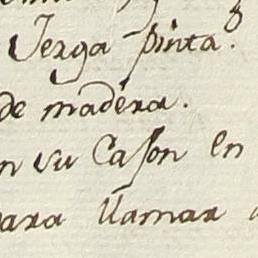 Jerga pinta.
de madera.
n su Cajon en
para llamar a